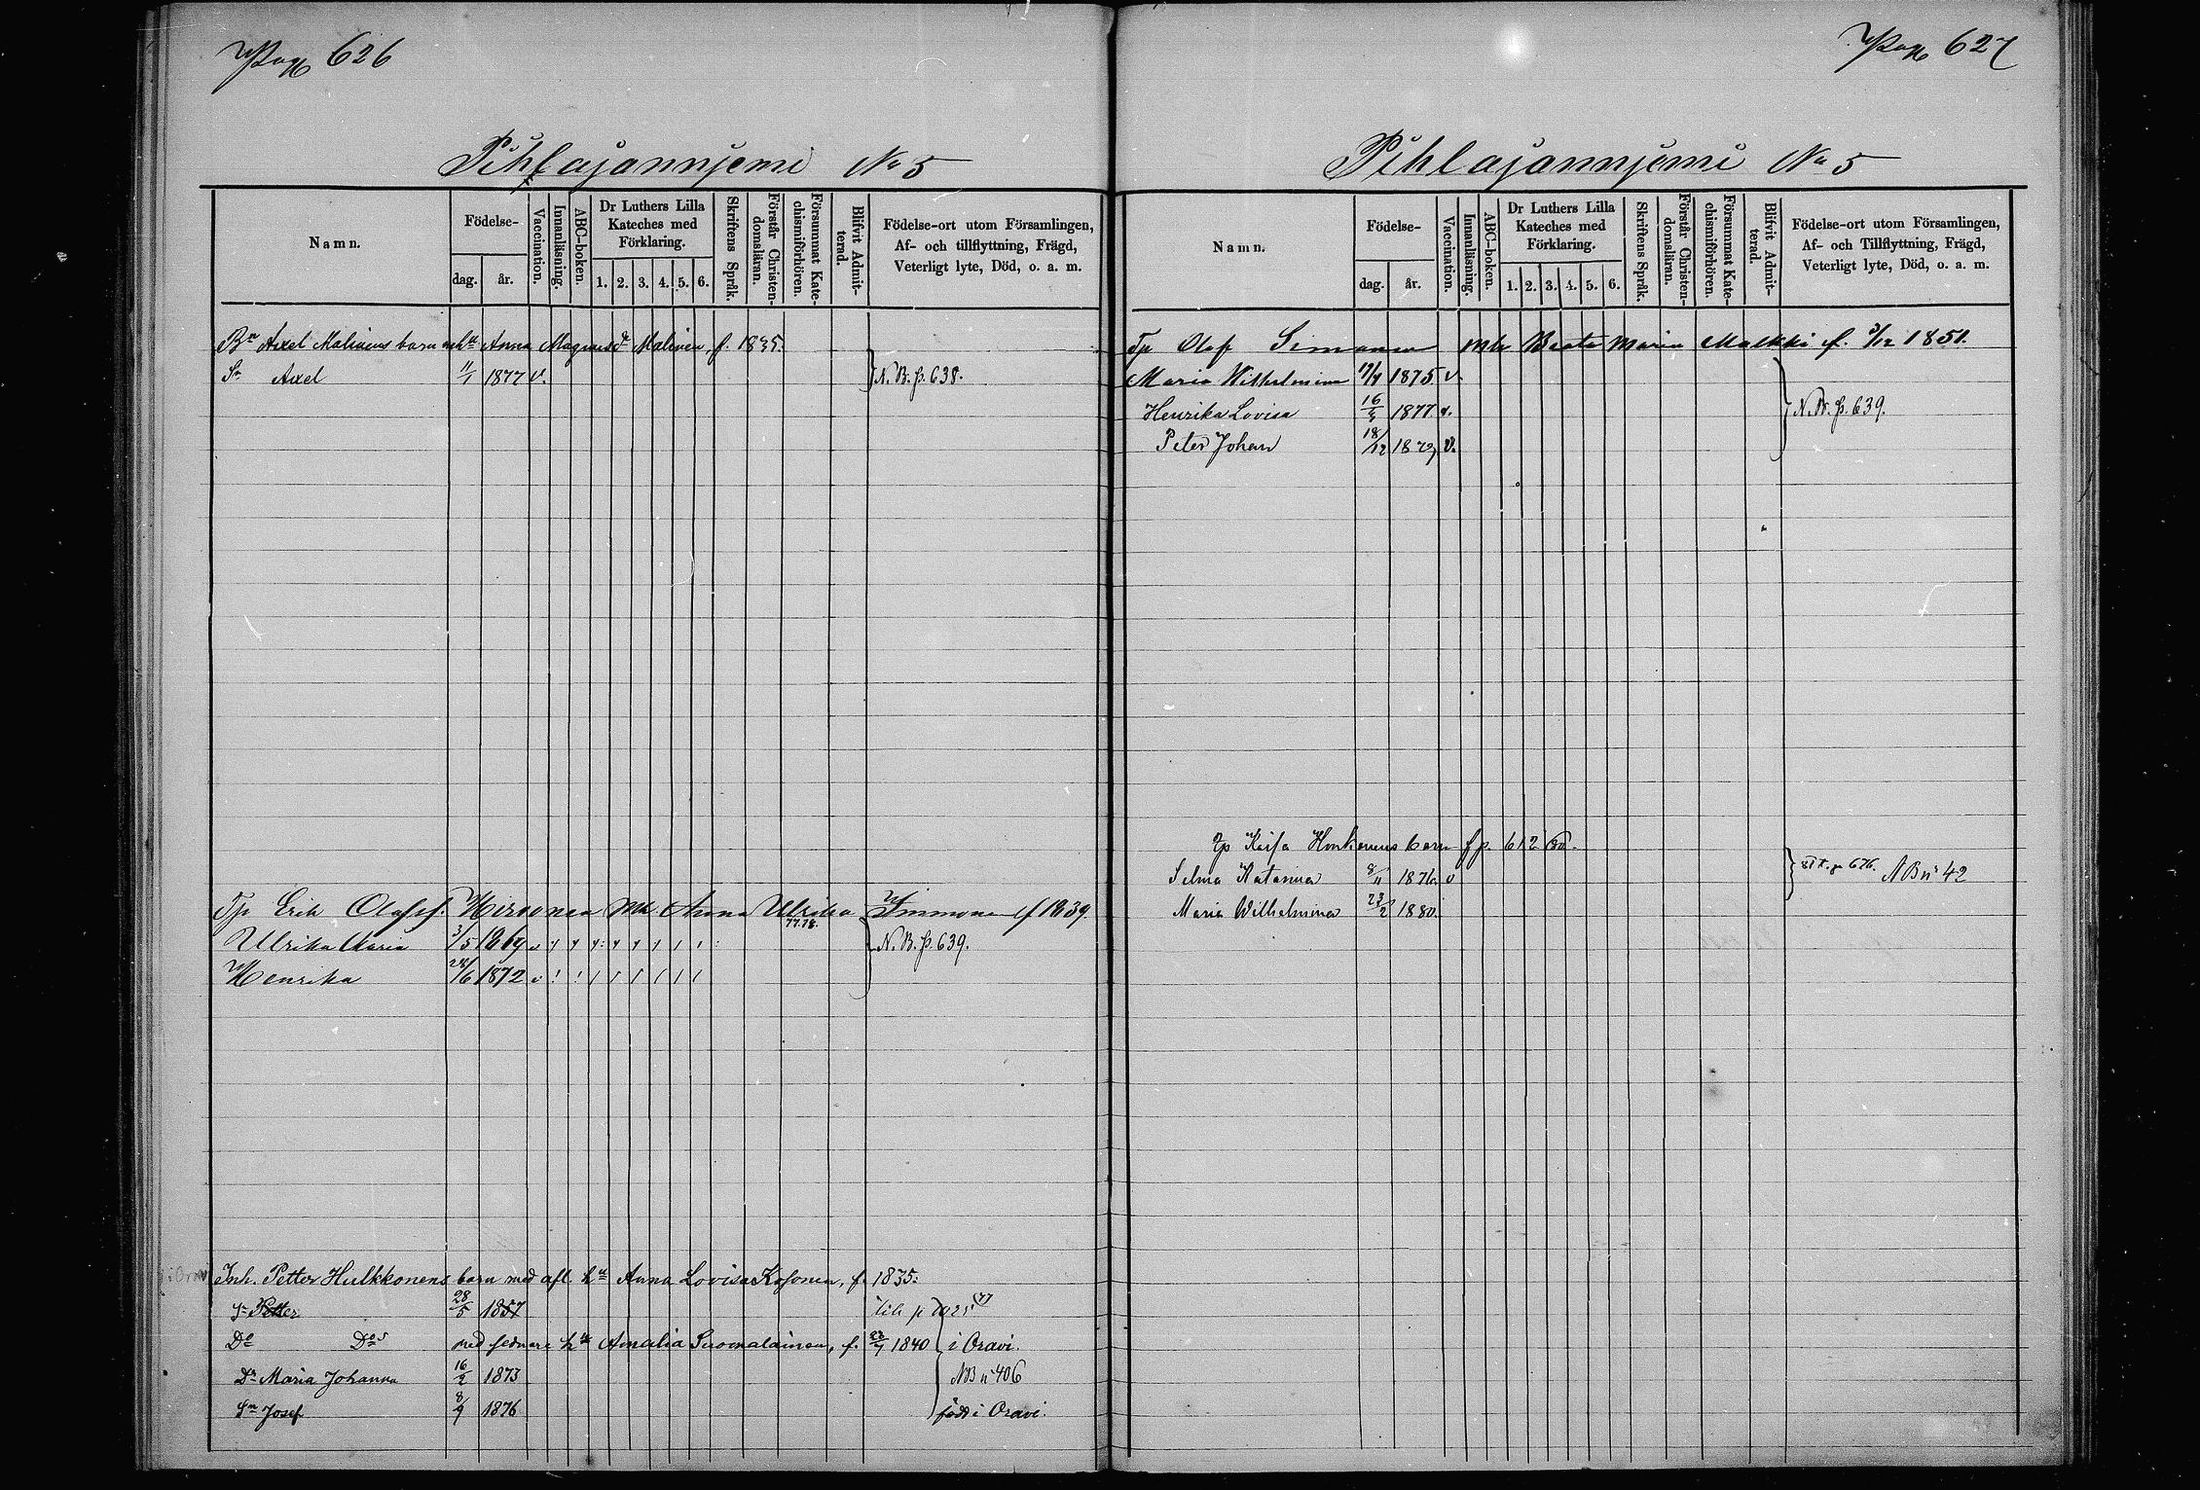 Pag 626
Pihlajanniemi No 5
Namn.
Födelse-
dag.
år.
Vaccination.
Innanläsning.
ABC-boken.
Dr Luthers Lilla
Kateches med
Förklaring.
1. 2. 3. 4. 5. 6.
Skriftens Språk.
Förstår Christen-
domsläran.
Försummat Kate-
chismiförhören.
Blifvit Admit-
terad.
Födelse-ort utom Församlingen,
Af- och tillflyttning, Frägd,
Veterligt lyte, Död, o. a. m.
Bn Axel Malinens barn m hu Anna Magnusdr Malinen, f. 1835.
Sn Axel 11/1 1877 v. N. B. p. 638.
Tp Erik Olofsf. Hirvonen Mh Anna Ulrika Immonen f 1839
77.78.
Ulrika Maria 3/5 1869 v N. B. p. 639.
Henrika 28/6 1872 v
Inh. Petter Hulkkonens barn med afl. hu Anna Lovisa Kosonen, f. 1835:
Sn Petter 28/5 1857
Do Dos med sednare hu Amalia Suomalainen, f. 22/7 1840 i Oravi.
Dr Maria Johanna 16/2 1873 NB n 406
Sn Josef 8/9 1876 född i Oravi.
Pag 627
Pihlajanniemi No 5
Namn.
Födelse-
dag.
år.
Vaccination.
Innanläsning.
ABC-boken.
Dr Luthers Lilla
Kateches med
Förklaring.
1. 2. 3. 4. 5. 6.
Skriftens Språk.
Förstår Christen-
domsläran.
Försummat Kate-
chismiförhören.
Blifvit Admit-
terad.
Födelse-ort utom Församlingen,
Af- och Tillflyttning, Frägd,
Veterligt lyte, Död, o. a. m.
Tp Olof Simonen Mh Beata Maria Malkki f. 1851.
Maria Wilhelmina 1875 v.
Henrika Lovisa 1877 v. N. B. p. 639.
Peter Johan 18/12 1879 v.
Tp Kaisa Honkanens barn f p. 612
Selma Katarina 8/11 1876 v p 676. NB n 42
Maria Wilhelmina 23/2 1880